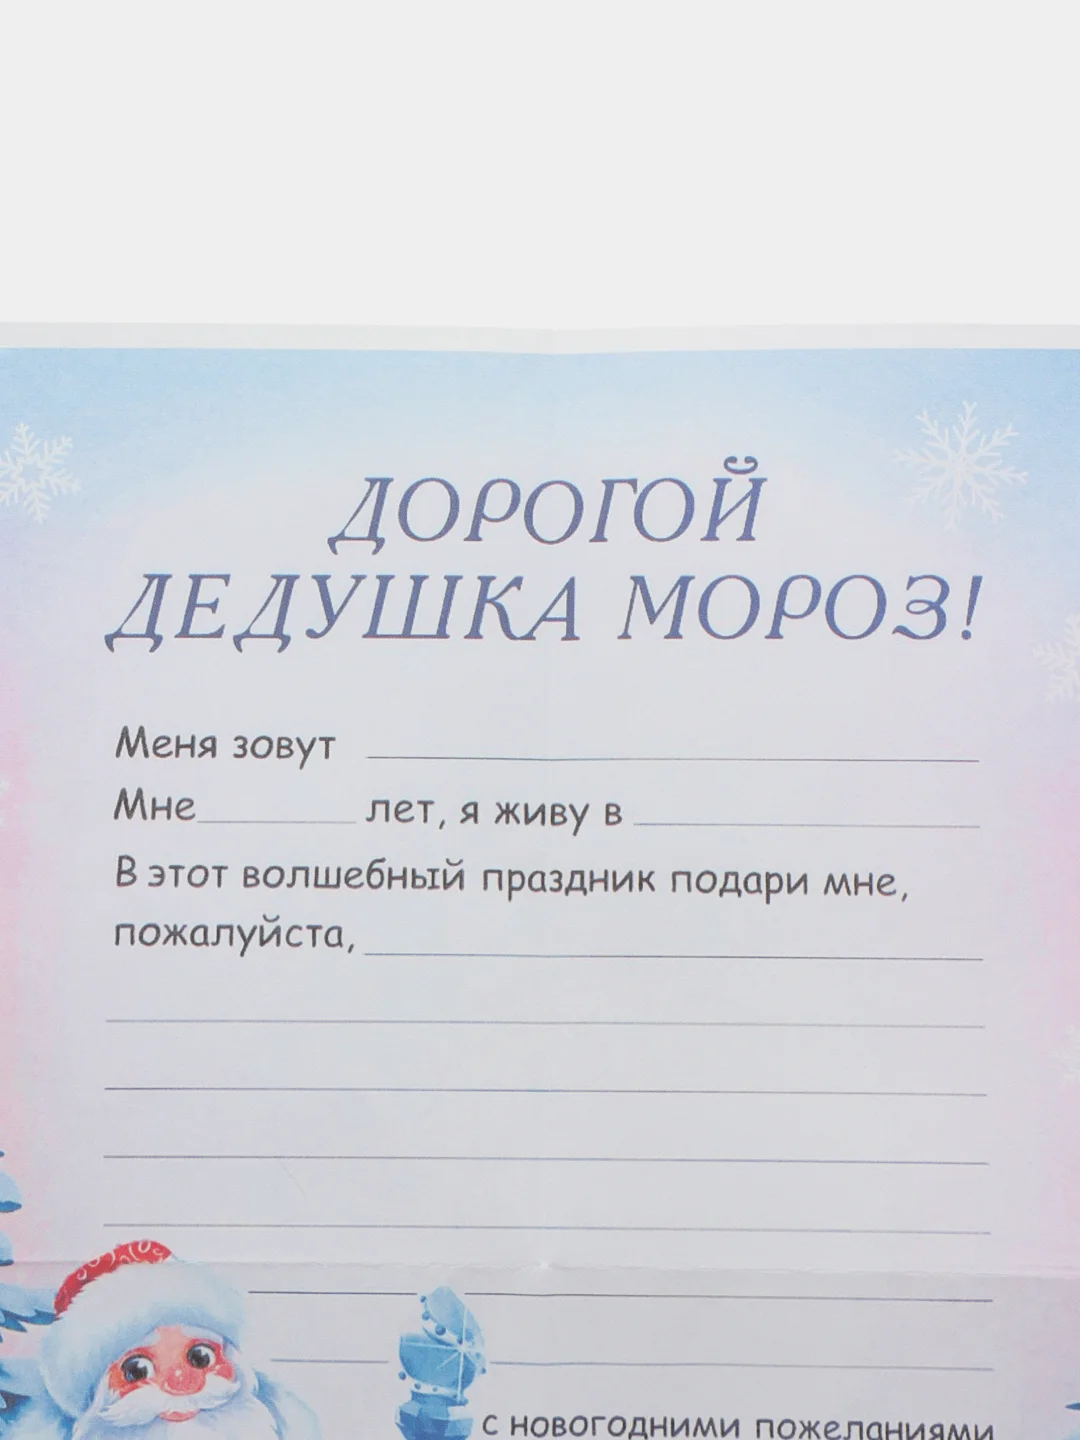 ДОРОГОЙ
ДЕДУШКА МОРОЗ!
Меня зовут
Мне лет, я живу в
В этот волшебный праздник подари мне,
пожалуйста,
с новогодними пожеланиями